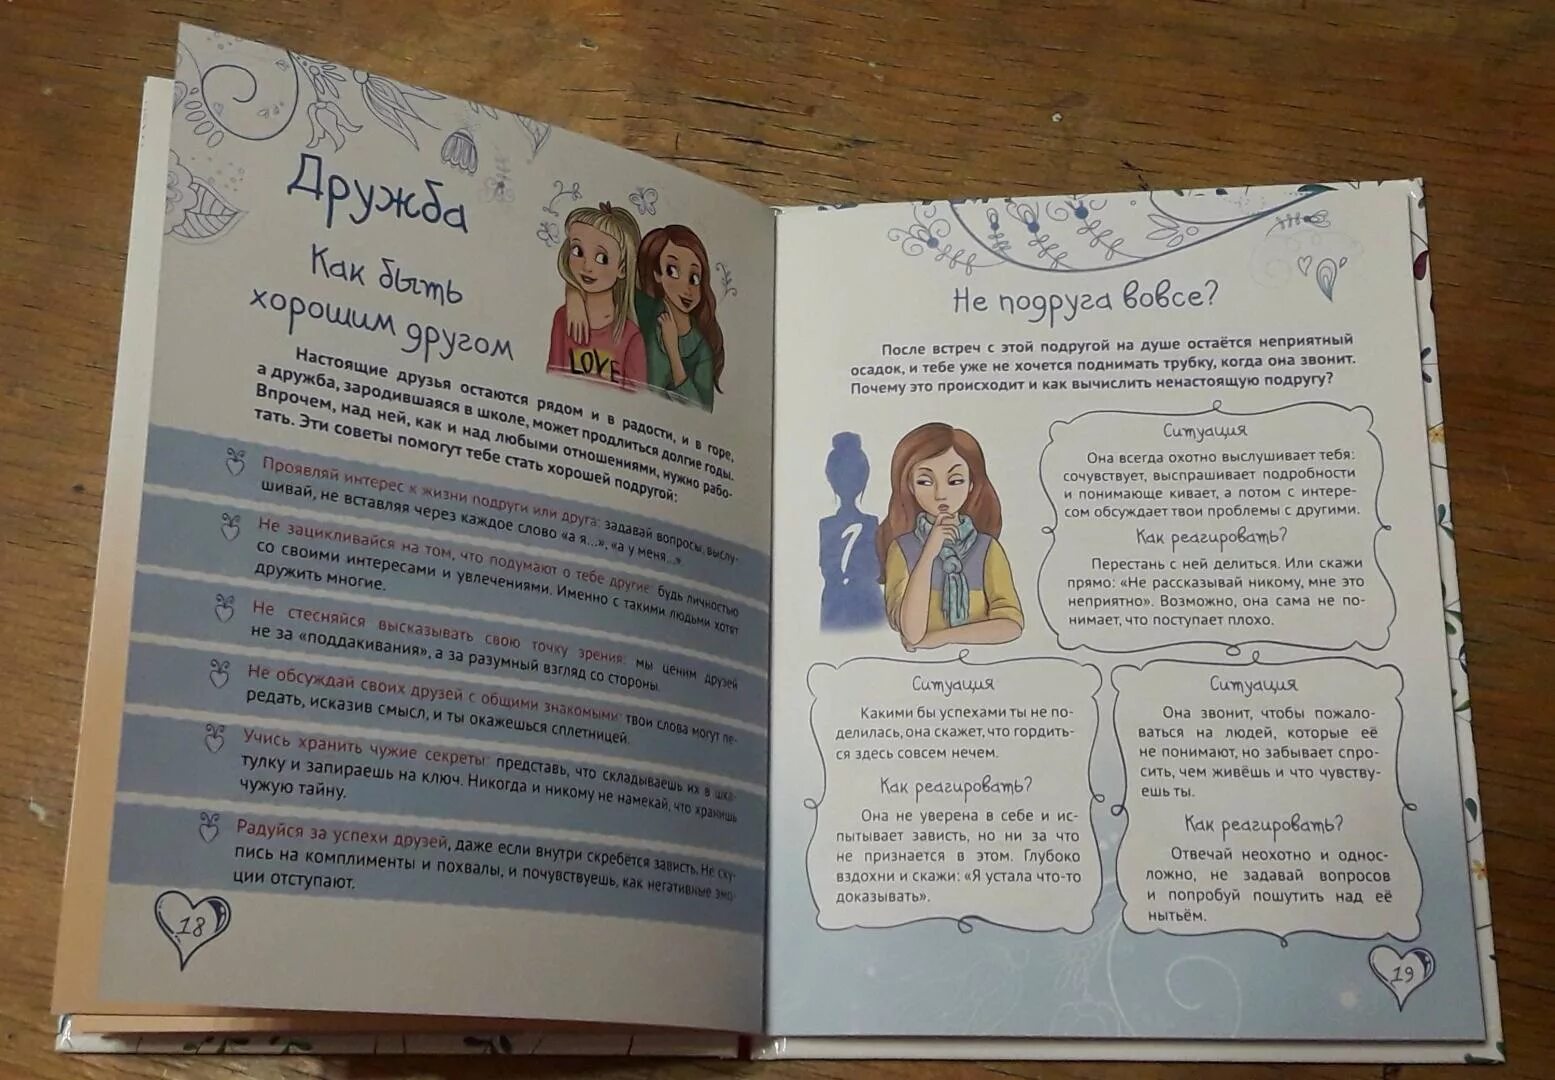 Дружба
Как быть
хорошим другом
LOVE
Настоящие друзья остаются рядом и в радости, и в горе,
а дружба, зародившаяся в школе, может продлиться долгие годы.
Впрочем, над ней, как и над любыми отношениями, нужно рабо-
тать. Эти советы помогут тебе стать хорошей подругой:
Проявляй интерес к жизни подруги или друга: задавай вопросы, выслу-
шивай, не вставляя через каждое слово «а я...», «а у меня...».
Не зацикливайся на том, что подумают о тебе другие: будь личностью
со своими интересами и увлечениями. Именно с такими людьми хотят
дружить многие.
Не стесняйся высказывать свою точку зрения: мы ценим друзей
не за «поддакивания», а за разумный взгляд со стороны.
Не обсуждай своих друзей с общими знакомыми: твои слова могут пе-
редать, исказив смысл, и ты окажешься сплетницей.
Учись хранить чужие секреты: представь, что складываешь их в шка-
тулку и запираешь на ключ. Никогда и никому не намекай, что хранишь
чужую тайну.
Радуйся за успехи друзей, даже если внутри скребётся зависть. Не ску-
пись на комплименты и похвалы, и почувствуешь, как негативные эмо-
ции отступают.
18
Не подруга вовсе?
После встреч с этой подругой на душе остаётся неприятный
осадок, и тебе уже не хочется поднимать трубку, когда она звонит.
Почему это происходит и как вычислить ненастоящую подругу?
?
Ситуация
Она всегда охотно выслушивает тебя:
сочувствует, выспрашивает подробности
и понимающе кивает, а потом с интере-
сом обсуждает твои проблемы с другими.
Как реагировать?
Перестань с ней делиться. Или скажи
прямо: «Не рассказывай никому, мне это
неприятно». Возможно, она сама не по-
нимает, что поступает плохо.
Ситуация
Какими бы успехами ты не по-
делилась, она скажет, что гордить-
ся здесь совсем нечем.
Как реагировать?
Она не уверена в себе и ис-
пытывает зависть, но ни за что
не признается в этом. Глубоко
вздохни и скажи: «Я устала что-то
доказывать».
Ситуация
Она звонит, чтобы пожало-
ваться на людей, которые её
не понимают, но забывает спро-
сить, чем живёшь и что чувству-
ешь ты.
Как реагировать?
Отвечай неохотно и однос-
ложно, не задавай вопросов
и попробуй пошутить над её
нытьём.
19